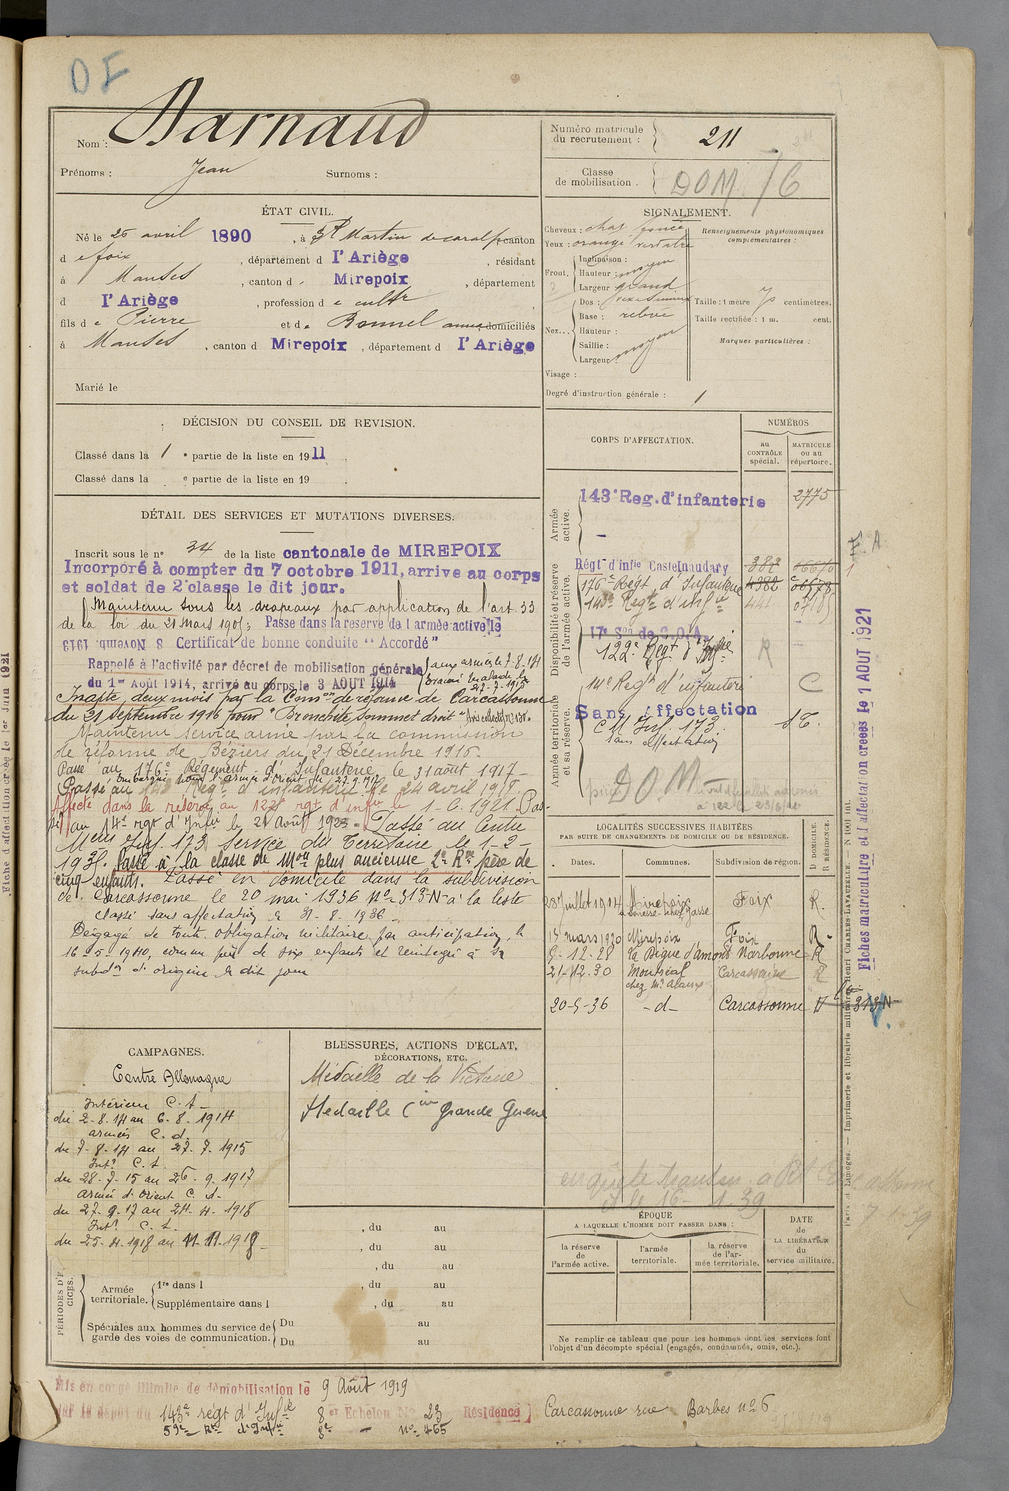 DF
Nom : Darnaud
Prénoms : Jean Surnoms :
Numéro matricule du recrutement : 211
Classe de mobilisation . DOM / 6
ÉTAT CIVIL.
Né le 25 avril 1890 , à St Martin de caralp canton
d e foix , département d l'Ariège , résidant
à Manses , canton d Mirepoix , département
d l'Ariège , profession d e cultr
fils d e Pierre et d e Bonnel domiciliés
à Manses , canton d Mirepoix , département d l'Ariège
Marié le
SIGNALEMENT.
Cheveux : chat foncé
Yeux : orange verdâtre
Front. Inclinaison :
Hauteur : moyen
Largeur grand
Nez... Dos :
Base : relevée
Hauteur :
Saillie :
Largeur : moyen
Visage :
Renseignements physionomiques complémentaires :
Taille : 1 mètre 70 centimètres.
Taille rectifiée : 1 m. cent.
Marques particulières :
Degré d'instruction générale : 1
DÉCISION DU CONSEIL DE REVISION.
Classé dans la 1 e partie de la liste en 1911 .
Classé dans la e partie de la liste en 19 .
DÉTAIL DES SERVICES ET MUTATIONS DIVERSES.
Inscrit sous le n° 34 de la liste cantonale de MIREPOIX
Incorporé à compter du 7 octobre 1911, arrive au corps
et soldat de 2e classe le dit jour.
Maintenu sous les drapeaux par application de l'art. 33
de la loi du 21 Mars 1905; Passe dans la reserve de l'armée active le
8 Novemb. 1913 Certificat de bonne conduite "Accordé"
Rappelé à l'activité par décret de mobilisation générale
du 1er Août 1914, arrivé au corps le 3 AOUT 1914
aux armées le 7-8-14
Évacué malade le 27-7-1915
Inapte deux mois par la Comon de réforme de Carcassonne
du 21 Septembre 1916 pour "Bronchite sommet droit"
Maintenu service armé par la commission
de réforme de Béziers du 21 Décembre 1916
Passé au 176e Régiment d'Infanterie le 31 août 1917
Embarqué pour l'armée d'Orient le 27.9.17
Passé au 143e Regt d'infanterie le 24 avril 1918
Affecté dans la réserve au 122e rgt d'infie le 1-6-1921. Pas-
sé au 14e rgt d'Infie le 21 août 1923 - Passé au Centre
Meur Inf. 173 service du Territoire le 1-2-
193 . Passé à la classe de Mon plus ancienne père de
cinq enfants. Passé en domicile dans la subdivision
de Carcassonne le 20 mai 1936 N° 313 N à la liste
classé sans affectation le 31-8-1936
Dégagé de toute obligation militaire par anticipation, le
16-5-1940, comme père de six enfants et réintégré à sa
subdon d'origine le dit jour
CORPS D'AFFECTATION.
NUMÉROS
au CONTRÔLE spécial.
MATRICULE ou au répertoire.
Armée active.
143e Reg. d'infanterie 2775
Disponibilité et réserve de l'armée active.
Régt d'infie Castelnaudary 382
176e Régt d'Infanterie 4382
143e Regt d'infie 441
17e Son de C.O.A.
122e Regt d'Infie R
Armée territoriale et sa réserve.
14e Regt d'infanterie C
Sans Affectation
C M Inf 173
sans affectation
DOM
LOCALITÉS SUCCESSIVES HABITÉES
PAR SUITE DE CHANGEMENTS DE DOMICILE OU DE RÉSIDENCE.
Dates. Communes. Subdivision de région. D DOMICILE. R RÉSIDENCE.
28 juillet 1914 Mirepoix Foix R.
15 mars 1920 Mirepoix Foix R-
9-12-28 La Digne d'amont Narbonne R
21-12.30 Montréal Carcassonne R
chez Mr Alaux
20-5-36 -d- Carcassonne D 313 N
CAMPAGNES.
Contre Allemagne
Intérieur C. S.
du 2-8.14 au 6-8.1914
armées C. d.
du 7-8-14 au 27-7-1915
Intr C. S.
du 28-7-15 au 26-9.1917
armée d'Orient C. d.
du 27-9.17 au 24-4-1918
Intr C. S.
du 25-4.1918 au 11.11.1918
BLESSURES, ACTIONS D'ÉCLAT, DÉCORATIONS, ETC.
Médaille de la Victoire
Médaille Cive Grande Guerre
PÉRIODES D'EXERCICES.
, du au
, du au
, du au
Armée territoriale. 1re dans l , du au
Supplémentaire dans l , du au
Spéciales aux hommes du service de garde des voies de communication. Du au
Du au
ÉPOQUE
A LAQUELLE L'HOMME DOIT PASSER DANS :
la réserve de l'armée active.
l'armée territoriale.
la réserve de l'armée territoriale.
DATE de LA LIBÉRATION du service militaire.
Ne remplir ce tableau que pour les hommes dont les services font
l'objet d'un décompte spécial (engagés, condamnés, omis, etc.).
Mis en congé illimité de démobilisation le 9 Août 1919
par le dépôt du 143e regt d'Infie 8e Echelon N° 23 Résidence Carcassonne rue Barbès n° 6
59e Rt d'Infie 8e - n° 465
F. A.
Fiches matriculaire et d'affectation creées le 1 AOUT 1921
Paris et Limoges. — Imprimerie et librairie militaires Henri CHARLES-LAVAUZELLE.
Fiche d'affectation créée le 1er Juin 1921